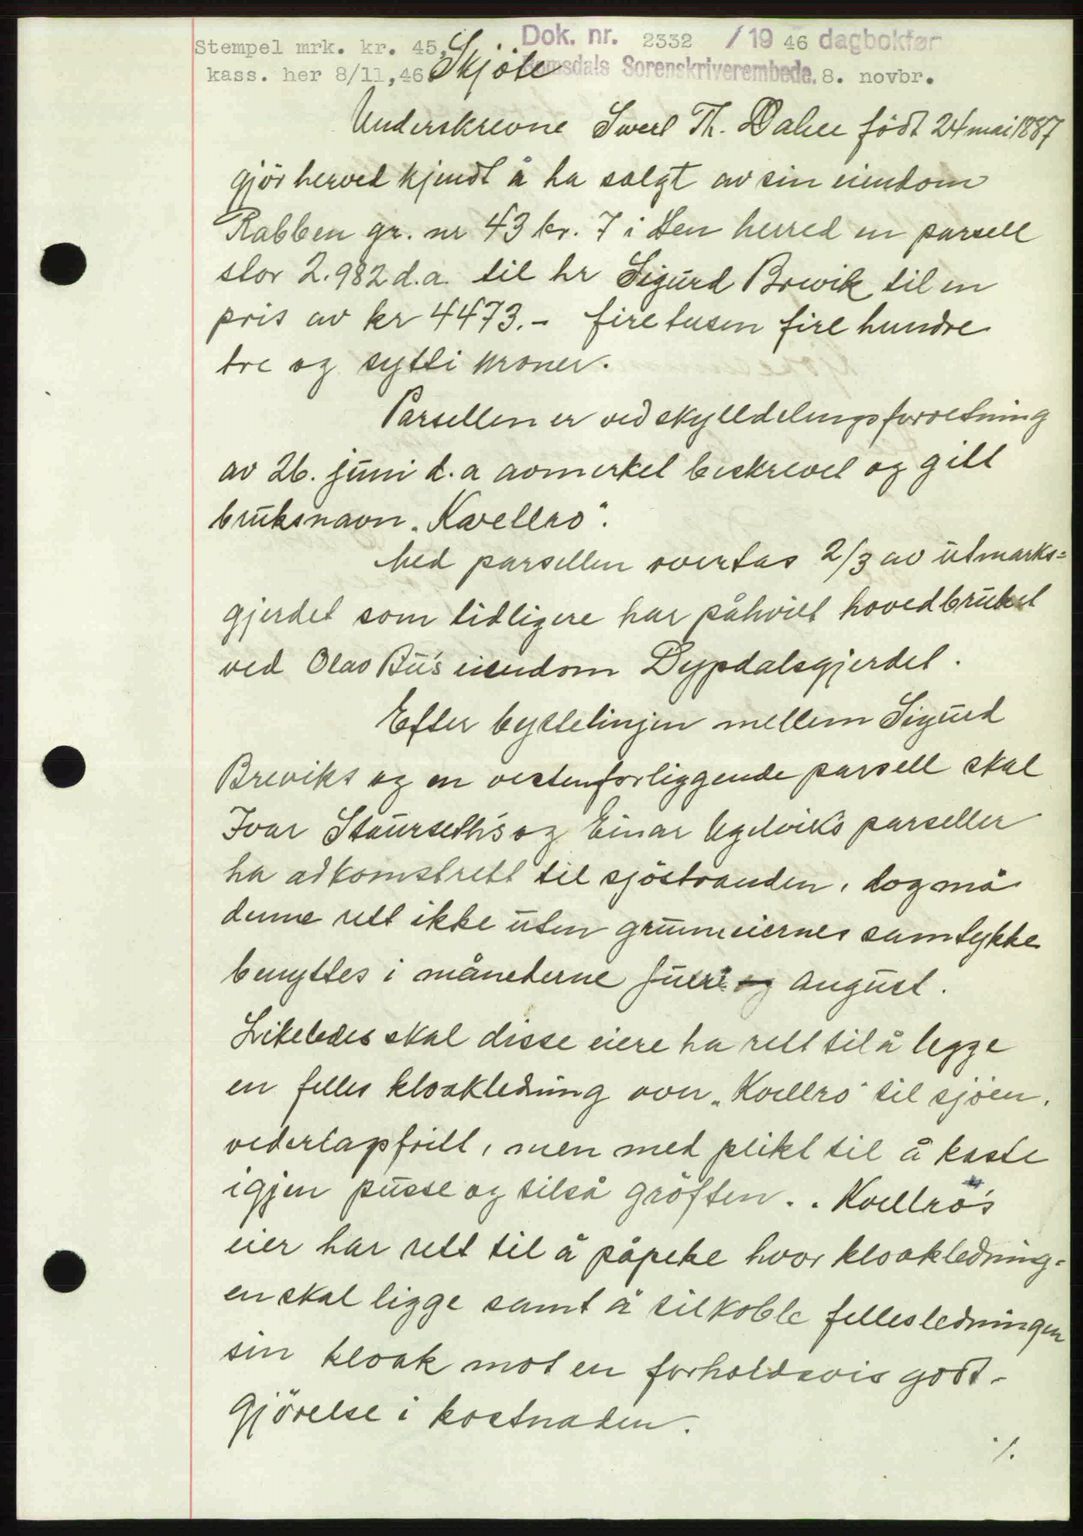 Stempel mrk. kr. 45,
kass. her 8/11,46
Dok. nr. 2332 /19 46 dagbokført
Romsdals Sorenskriverembede, 8. novbr.
Skjöte
Underskrevne Sverl Th. Dahle födt 24 mai 1887
gjör herved kjendt å ha solgt av sin eiendom
Rabben gr. nr 43 br. 7 i Hen herred en parsell
stor 2.982 d.a. til hr Sigurd Brevik til en
pris av kr 4473.- fire tusen fire hundre
tre og sytti kroner.
Parsellen er ved skylddelingsforretning
av 26. juni d.a avmerket beskrevet og gitt
bruksnavn „Kvellro".
Med parsellen overtas 2/3 av utmarks=
gjerdet som tidligere har påhvilt hovedbruket
ved Olav Bü's eiendom Dypdalsgjerdet.
Efter byttelinjen mellem Sigurd
Breviks og en vestenforliggende parsell skal
Ivar Staurseth's og Einar parseller
ha adkomstrett til sjöstranden, dog må
denne rett ikke uten grunneiernes samtykke
benyttes i månederne Juli og August.
Likeledes skal disse eiere ha rett til å legge
en felles kloakledning over „Kvellro" til sjöen,
vederlagsfritt, men med plikt til å kaste
igjen pusse og tilså gröften. . Kvellro's
eier har rett til å påpeke hvor kloakledning=
en skal ligge samt å tilkoble fellesledningen
sin kloak mot en forholdsvis godt-
gjörelse i kostnaden.
./.